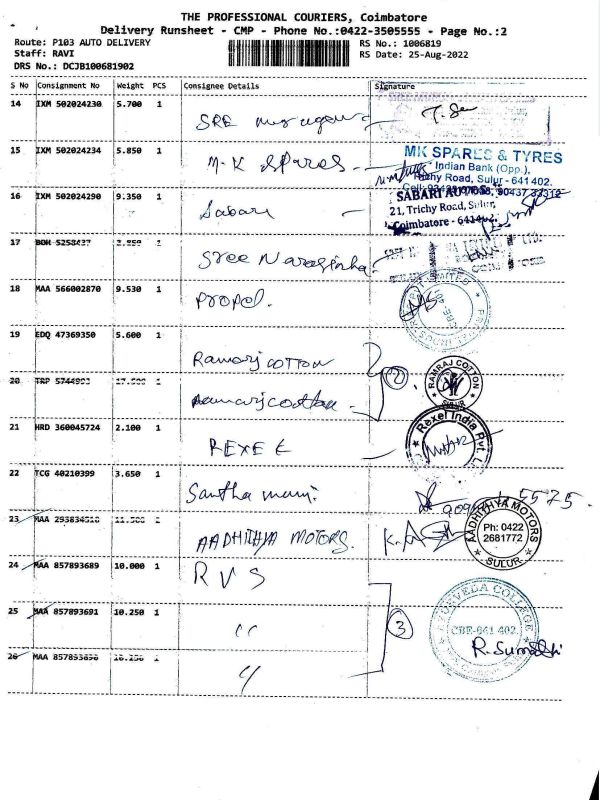 THE PROFESSIONAL COURIERS, Coimbatore
Delivery Runsheet - CMP - Phone No.:0422-3505555 - Page No.:2
Route: P103 AUTO DELIVERY
Staff: RAVI
DRS No.: DCJB100681902
RS No.: 1006819
RS Date: 25-Aug-2022
S No Consignment No Weight PCS Consignee Details Signature
14 IXM 502024230 5.700 1 SRE T. Se
15 IXM 502024234 5.850 1 M-K Spares
MK SPARES & TYRES
Indian Bank (Opp.)
Trichy Road, Sulur - 641 402.
16 IXM 502024290 9.350 1 Sabari
SABARI
21, Trichy Road, Sulur,
Coimbatore - 641402.
17 1 Sree Narasinha
18 MAA 566002870 9.530 1 Propel.
19 EDQ 47369350 5.600 1 Ramarj cotton
20 TRP 1 Ramarj cotton
2
RAMRAJ COTTON
SULUR
21 HRD 360045724 2.100 1 REXEL
Rexel India Pvt.
22 TCG 40210399 3.650 1 Santha
5575
23 MAA 1 AADHITHYA MOTORS.
AADHITHYA MOTORS
Ph: 0422
2681772
SULUR
24 MAA 857893689 10.000 1 RVS
25 MAA 857893691 10.250 1 "
3
COLLEGE
CBE-641 402.
26 MAA 1 "